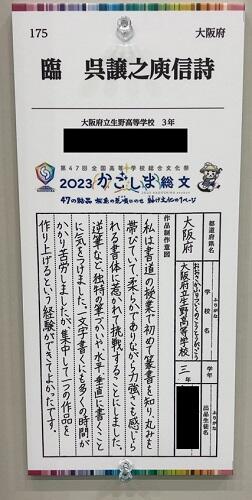 175
大阪府
臨　呉譲之庾信詩
大阪府立生野高等学校　３年
第47回全国高等学校総合文化祭
2023かごしま総文
47の結晶 桜島の気噴にのせ 紡げ文化の1ページ
都道府県名
大阪府
ふりがな
学校名
おおさかふりついくのこうとうがっこう
大阪府立生野高等学校
学年
三年
ふりがな
出品生徒名
作品制作意図
私は書道の授業で初めて篆書を知り、丸みを
帯びていて、柔らかでありながら力強さも感じら
れる書体に惹かれて、挑戦することにしました。
逆筆など、独特の筆づかいや、水平・垂直に書くこと
に気をつけました。一文字書くにも多くの時間が
かかり苦労しましたが、集中して一つの作品を
作り上げるという経験ができてよかったです。